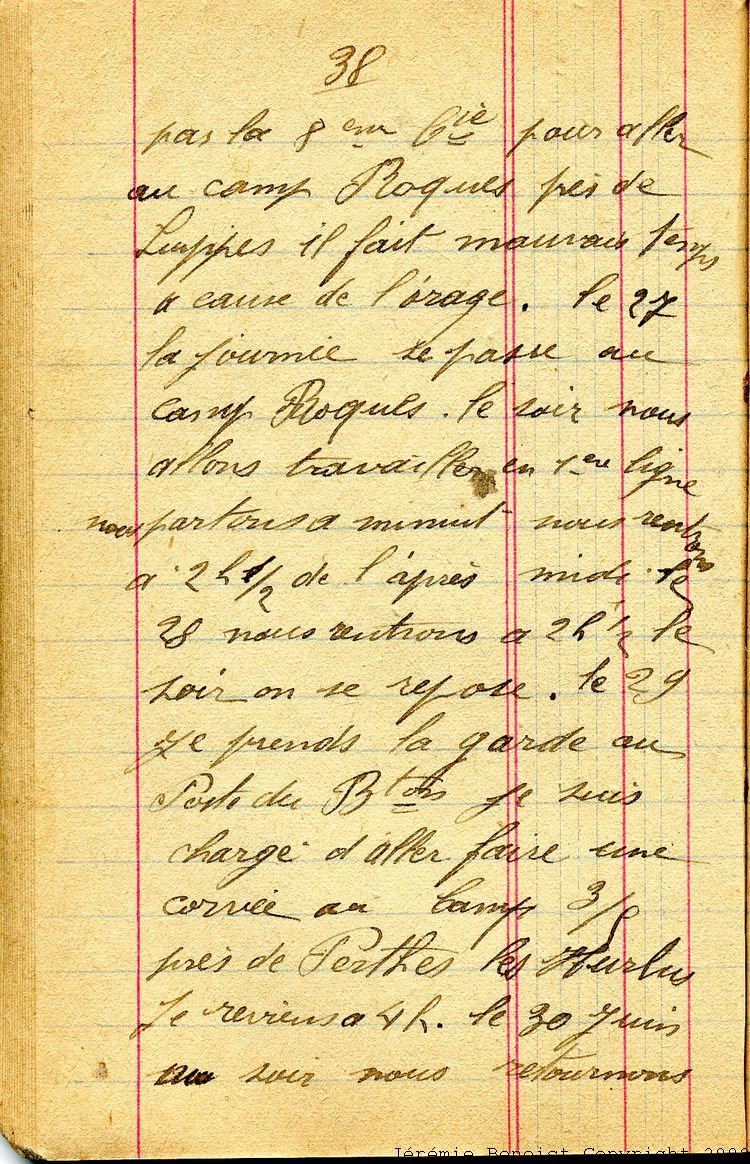 38
pas la 8 eme Cie pour aller
au camp Roques près de
Suippes il fait mauvais temps
a cause de l'orage. le 27
la journée se passe au
camp Roques. le soir nous
allons travailler en 1ere ligne
nous partons a minuit nous rentrons
a 2h 1/2 de l'après midi. le
28 nous rentrons a 2h 1/2 le
soir on se repose. le 29
Je prends la garde au
Poste du Bton je suis
chargé d aller faire une
corvée au Camp 3/8
près de Perthes les Hurlus
Je reviens a 4h. le 30 Juin
au soir nous retournons
Jérémie Benoist Copyright